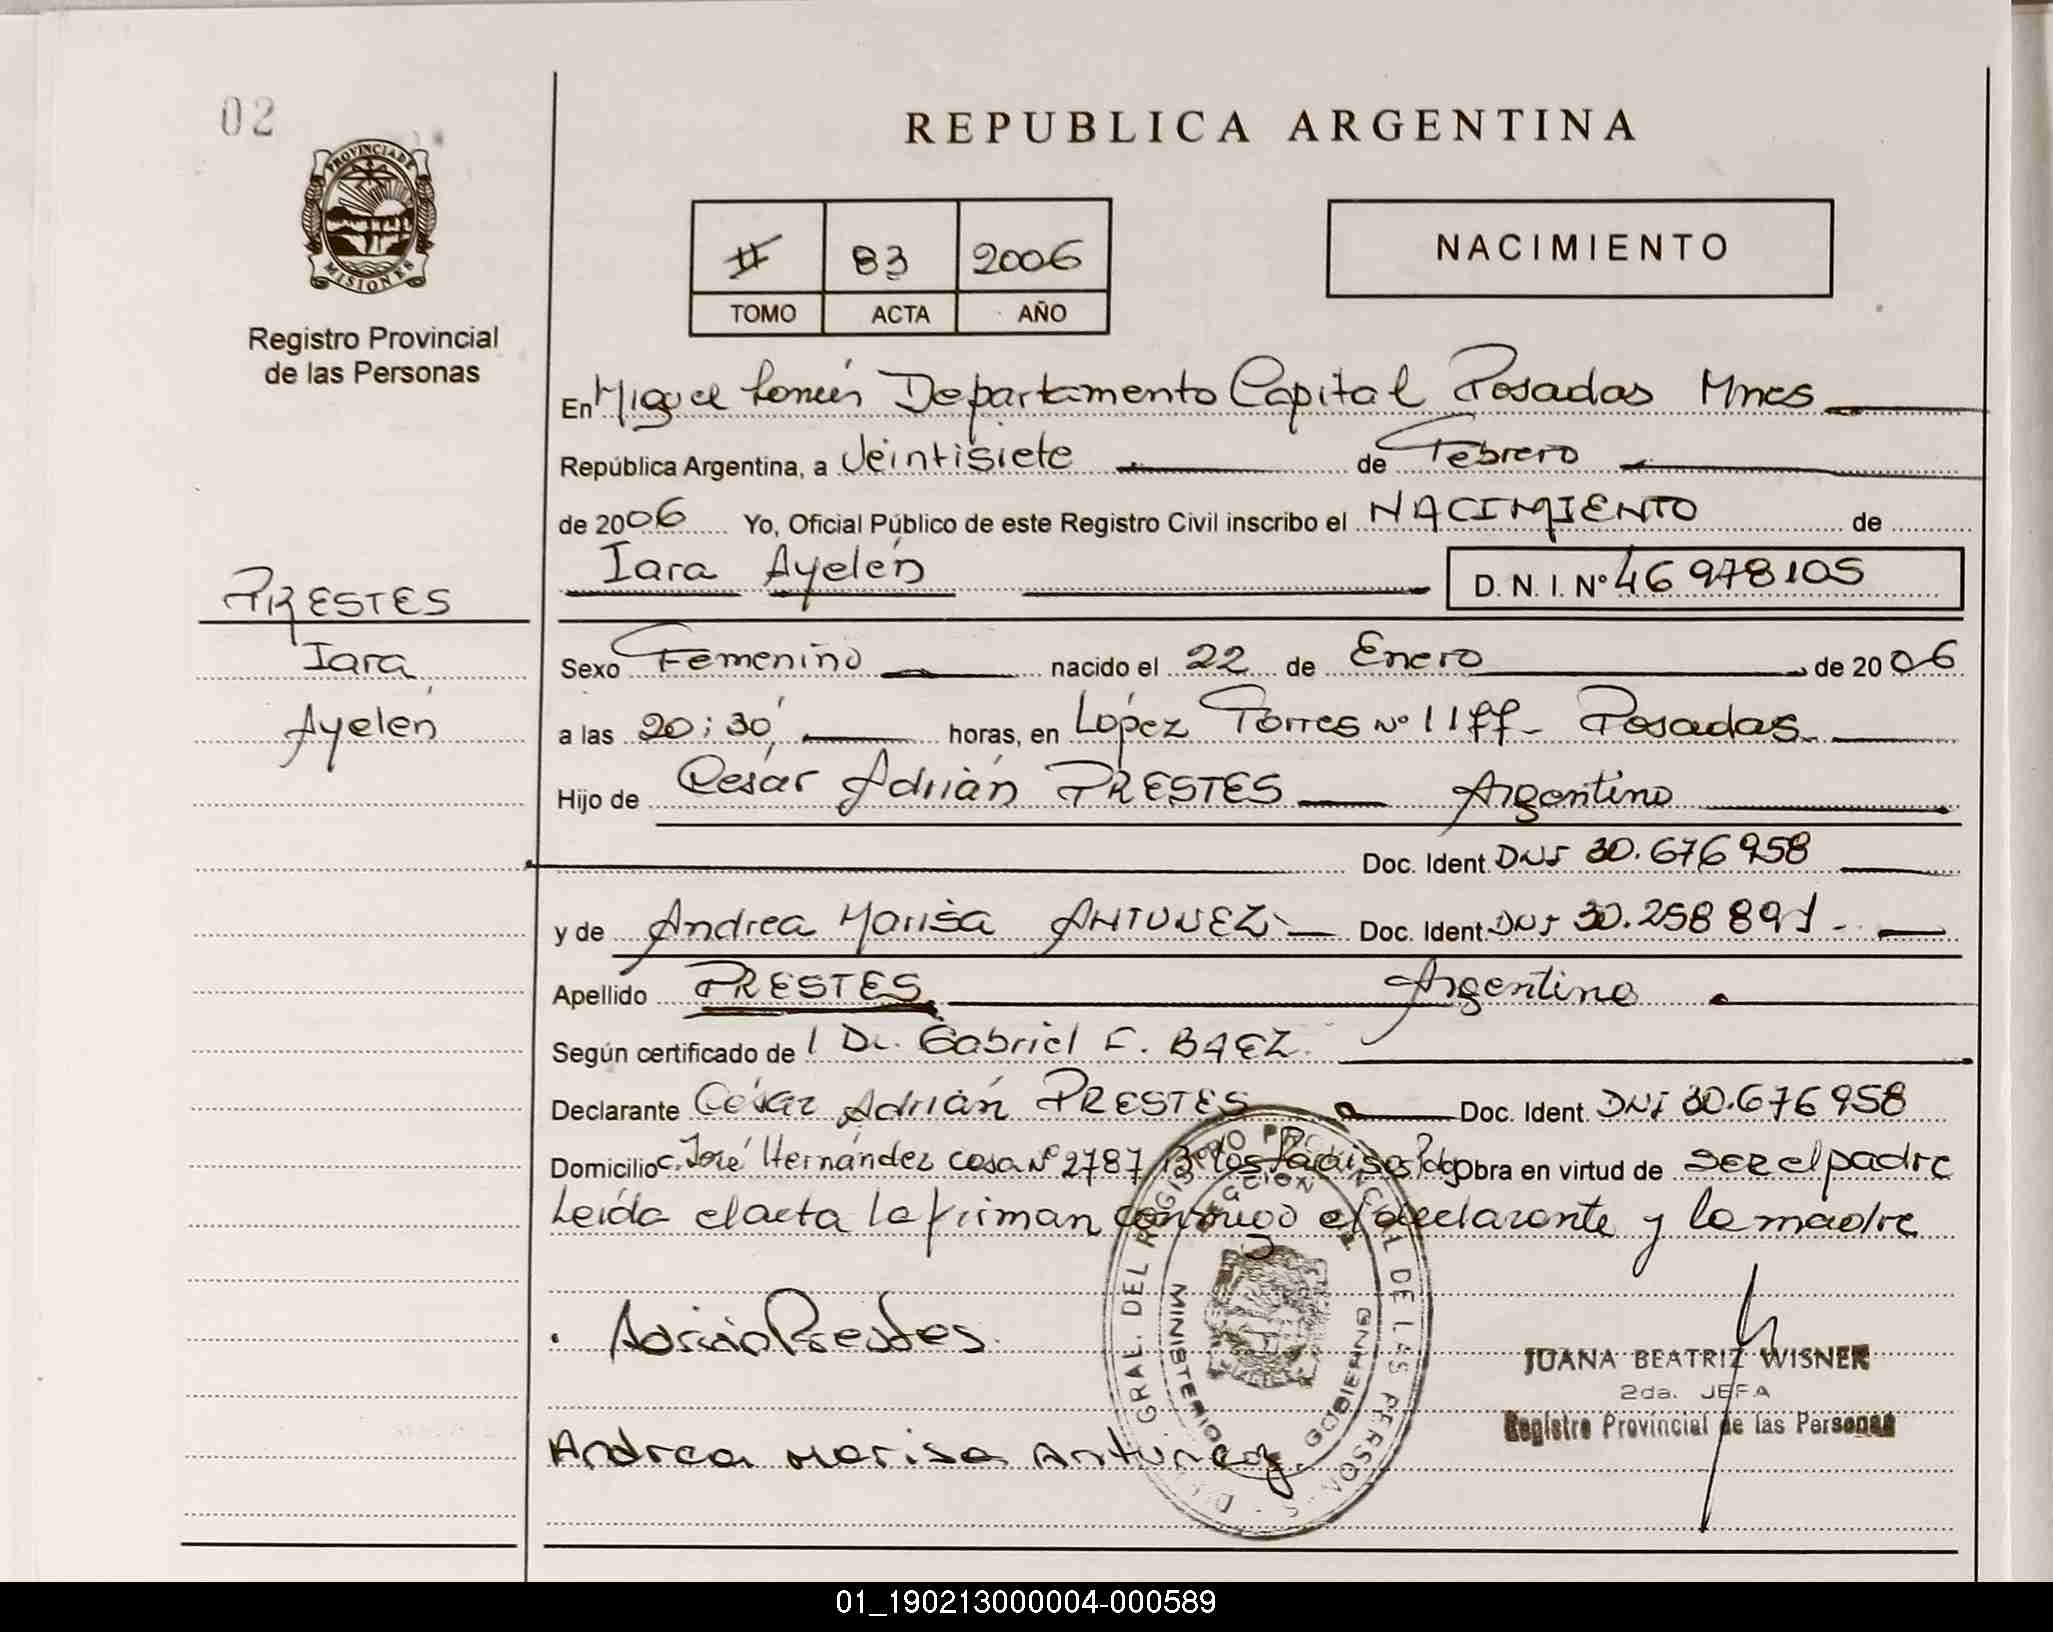 02
REPUBLICA ARGENTINA
PROVINCIA DE
MISIONES
Registro Provincial
de las Personas
II 83 2006
TOMO ACTA AÑO
NACIMIENTO
En Miguel Lanús Departamento Capital Posadas Mnes
República Argentina, a Veintisiete de Febrero
de 2006 Yo, Oficial Público de este Registro Civil inscribo el NACIMIENTO de
Iara Ayelén D. N. I. Nº 46 978105
PRESTES
Iara
Ayelén
Sexo Femenino nacido el 22 de Enero de 2006
a las 20:30 horas, en López Torres Nº 1177 - Posadas
Hijo de César Adrián PRESTES Argentino
Doc. Ident. DNI 30.676958
y de Andrea Marisa ANTUNEZ Doc. Ident. DNI 30.258891
Apellido PRESTES Argentina
Según certificado de l Dr. Gabriel F. BAEZ
Declarante César Adrián PRESTES Doc. Ident. DNI 30.676958
Domicilio C. José Hernández casa Nº 2787 Bº los Paraisos Pdas obra en virtud de SER el padre
Leída el acta la firman conmigo el declarante y la madre
Adrián Prestes
JUANA BEATRIZ WISNER
2da. JEFA
Registro Provincial de las Personas
Andrea Marisa Antunez
GRAL. DEL REGISTRO PROVINCIAL DE LAS PERSONAS
MINISTERIO GOBIERNO
01_190213000004-000589